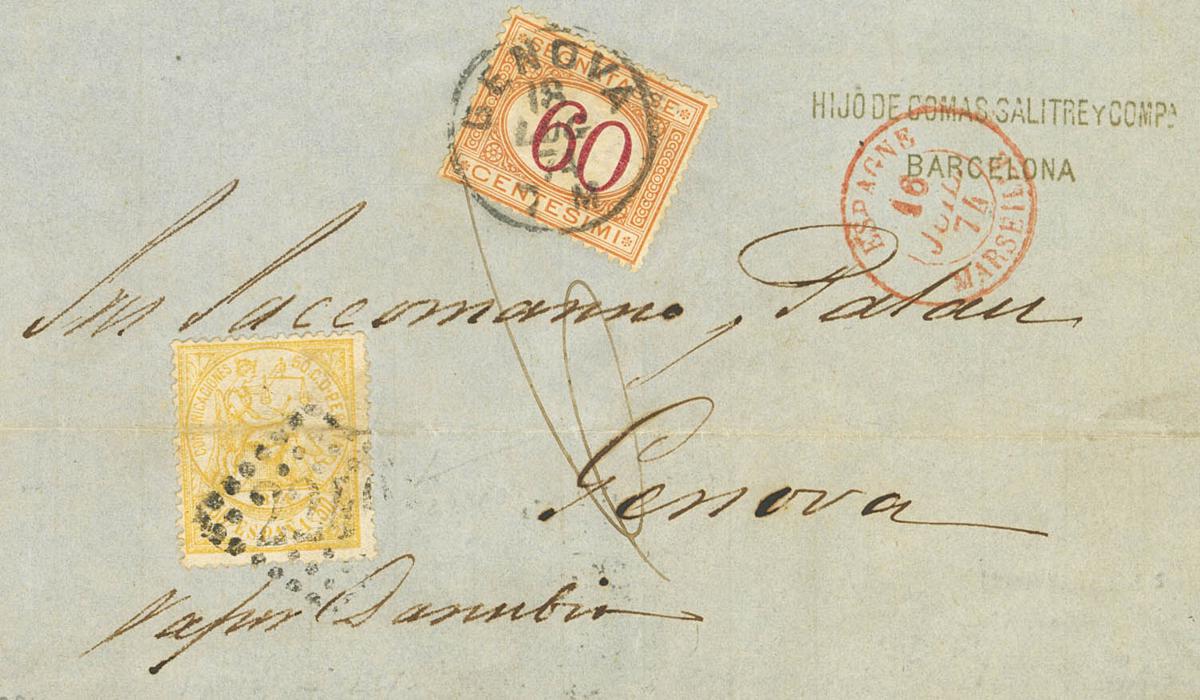 SEGNATASSE
60
CENTESIMI
GENOVA
18
LUG
74
7 M
HIJO DE COMAS, SALITRE Y COMPA
BARCELONA
ESPAGNE
16
JUIL
74
MARSEILLE
Sres Saccomanno, Palau
Genova
COMUNICACIONES
50 C. D. PESETA
Vapor Danubio